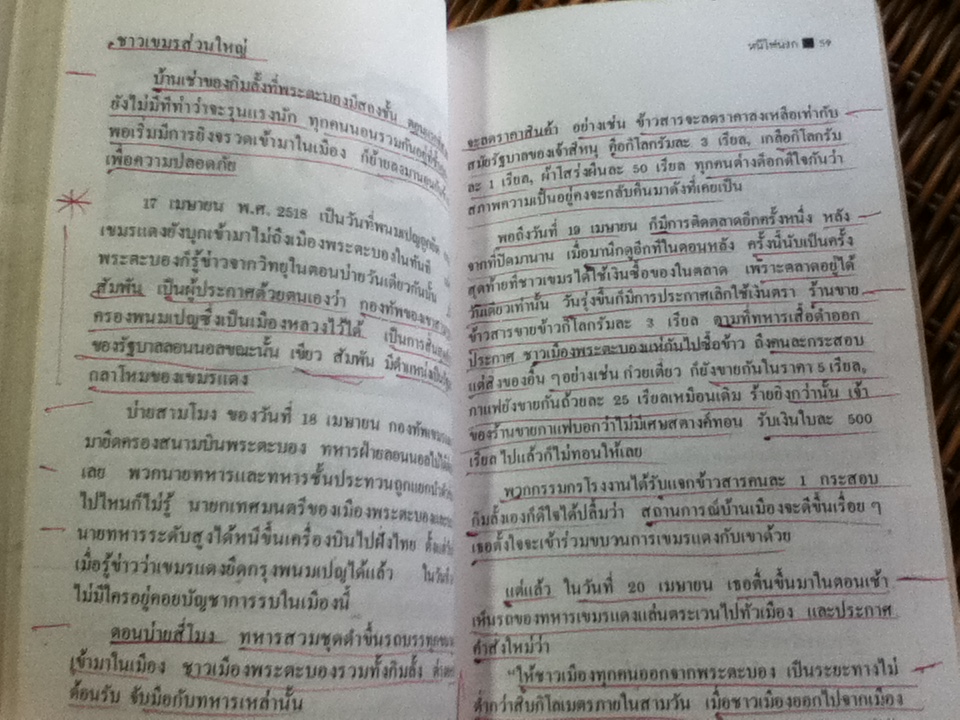 ชาวเขมรส่วนใหญ่
บ้านเช่าของกิมลั้งที่พระตะบองมีสองชั้น
ยังไม่มีทีท่าว่าจะรุนแรงนัก ทุกคนนอนรวมกันอยู่ที่
พอเริ่มมีการยิงจรวดเข้ามาในเมือง ก็ย้ายลงมานอน
เพื่อความปลอดภัย
17 เมษายน พ.ศ. 2518 เป็นวันที่พนมเปญถูก
เขมรแดงยังบุกเข้ามาไม่ถึงเมืองพระตะบองในทันที
พระตะบองก็รู้ข่าวจากวิทยุในตอนบ่ายวันเดียวกันนั้น
สัมพัน เป็นผู้ประกาศด้วยตนเองว่า กองทัพของเขา
ครองพนมเปญซึ่งเป็นเมืองหลวงไว้ได้ เป็นการ
ของรัฐบาลลอนนอลขณะนั้น เขียว สัมพัน มีตำแหน่งเป็น
กลาโหมของเขมรแดง
บ่ายสามโมง ของวันที่ 18 เมษายน กองทัพเขมร
มายึดครองสนามบินพระตะบอง ทหารฝ่ายลอนนอลไม่
เลย พวกนายทหารและทหารชั้นประทวนถูกแยกนำตัว
ไปไหนก็ไม่รู้ นายกเทศมนตรีของเมืองพระตะบองและ
นายทหารระดับสูงได้หนีขึ้นเครื่องบินไปฝั่งไทย ตั้งแต่
เมื่อรู้ข่าวว่าเขมรแดงยึดกรุงพนมเปญได้แล้ว ในวัน
ไม่มีใครอยู่คอยบัญชาการรบในเมืองนี้
ตอนบ่ายสี่โมง ทหารสวมชุดดำขึ้นรถบรรทุก
เข้ามาในเมือง ชาวเมืองพระตะบองรวมทั้งกิมลั้ง
ต้อนรับ จับมือกับทหารเหล่านั้น
หนีไฟนรก ■ 59
จะลดราคาสินค้า อย่างเช่น ข้าวสารจะลดราคาลงเหลือเท่ากับ
สมัยรัฐบาลของเจ้าสีหนุ คือกิโลกรัมละ 3 เรียล, เกลือกิโลกรัม
ละ 1 เรียล, ผ้าโสร่งผืนละ 50 เรียล ทุกคนต่างดีอกดีใจกันว่า
สภาพความเป็นอยู่คงจะกลับคืนมาดังที่เคยเป็น
พอถึงวันที่ 19 เมษายน ก็มีการติดตลาดอีกครั้งหนึ่ง หลัง
จากที่ปิดมานาน เมื่อมานึกดูอีกทีในตอนหลัง ครั้งนี้นับเป็นครั้ง
สุดท้ายที่ชาวเขมรได้ใช้เงินซื้อของในตลาด เพราะตลาดอยู่ได้
วันเดียวเท่านั้น วันรุ่งขึ้นก็มีการประกาศเลิกใช้เงินตรา ร้านขาย
ข้าวสารขายข้าวกิโลกรัมละ 3 เรียล ตามที่ทหารเสื้อดำออก
ประกาศ ชาวเมืองพระตะบองแห่กันไปซื้อข้าว ถึงคนละกระสอบ
แต่สิ่งของอื่น ๆอย่างเช่น ก๋วยเตี๋ยว ก็ยังขายกันในราคา 5 เรียล,
กาแฟยังขายกันถ้วยละ 25 เรียลเหมือนเดิม ร้ายยิ่งกว่านั้น เจ้า
ของร้านขายกาแฟบอกว่าไม่มีเศษสตางค์ทอน รับเงินใบละ 500
เรียล ไปแล้วก็ไม่ทอนให้เลย
พวกกรรมกรโรงงานได้รับแจกข้าวสารคนละ 1 กระสอบ
กิมลั้งเองก็ดีใจได้ปลื้มว่า สถานการณ์บ้านเมืองจะดีขึ้นเรื่อย ๆ
เธอตั้งใจจะเข้าร่วมขบวนการเขมรแดงกับเขาด้วย
แต่แล้ว ในวันที่ 20 เมษายน เธอตื่นขึ้นมาในตอนเช้า
เห็นรถของทหารเขมรแดงแล่นตระเวนไปทั่วเมือง และประกาศ
คำสั่งใหม่ว่า
“ให้ชาวเมืองทุกคนออกจากพระตะบอง เป็นระยะทางไม่
ต่ำกว่าสิบกิโลเมตรภายในสามวัน เมื่อชาวเมืองออกไปจากเมือง